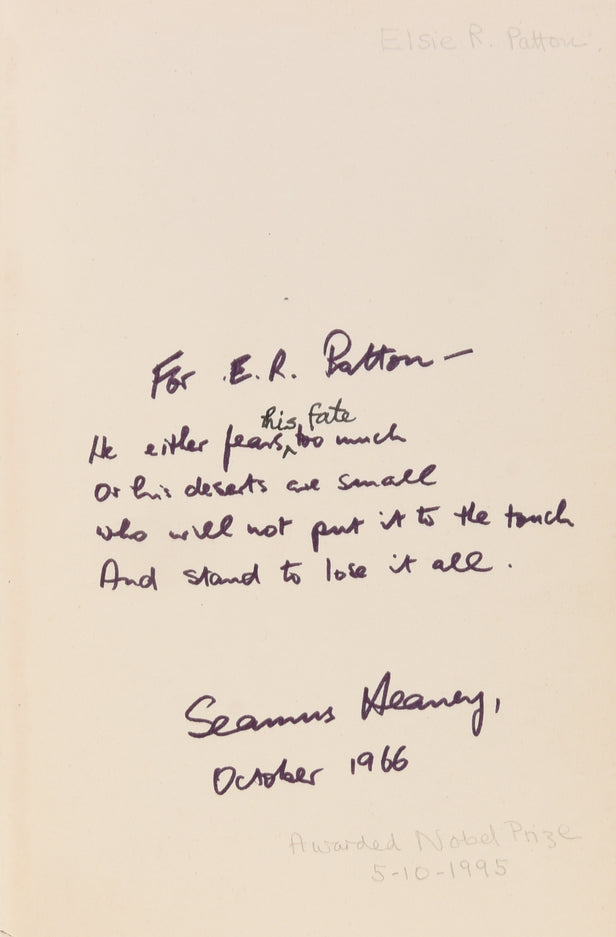 Elsie R. Patton.
For E. R. Patton —
He either fears his fate too much
Or his deserts are small
who will not put it to the touch
And stand to lose it all.
Seamus Heaney,
October 1966
Awarded Nobel Prize
5-10-1995